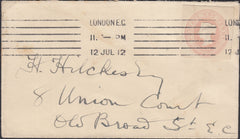 LONDON.E.C.
11. - PM
12 JUL 12
H. Hitchesby
8 Union Court
Old Broad St E C